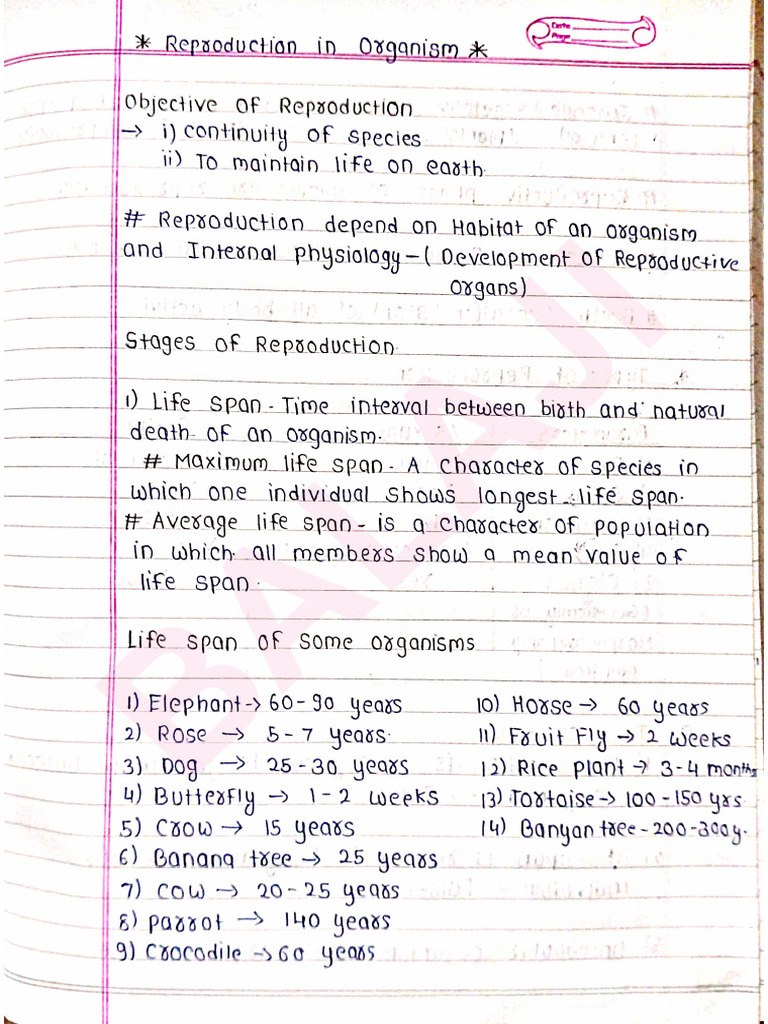 * Reproduction in Organism *
Date
Page
Objective of Reproduction
→ i) continuity of species
ii) To maintain life on earth
# Reproduction depend on Habitat of an organism
and Internal physiology - (Development of Reproductive
organs)
Stages of Reproduction
1) Life span - Time interval between birth and natural
death of an organism.
# Maximum life span - A character of species in
which one individual shows longest life span.
# Average life span - is a character of population
in which all members show a mean value of
life span.
Life span of some organisms
1) Elephant → 60-90 years
2) Rose → 5-7 years
3) Dog → 25-30 years
4) Butterfly → 1-2 weeks
5) Crow → 15 years
6) Banana tree → 25 years
7) Cow → 20-25 years
8) parrot → 140 years
9) Crocodile → 60 years
10) Horse → 60 years
11) Fruit Fly → 2 weeks
12) Rice plant → 3-4 months
13) Tortoise → 100-150 yrs
14) Banyan tree - 200-300y.
BALAJI